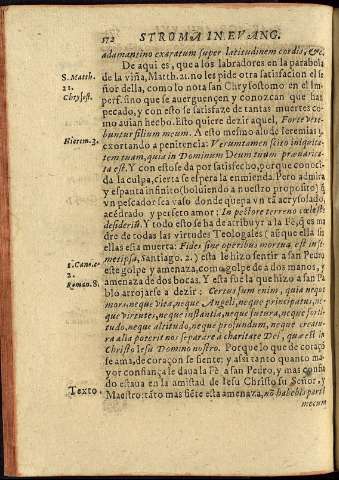 572 STROMA IN EVANG.
adamantino exaratum super latitudinem cordis, &c.
De aqui es, que a los labradores en la parabola
S. Matth. de la viña, Matth. 21. no les pide otra satisfacion el se
21. ñor della, como lo nota san Chrysostomo en el Im
Chrysost. perf. sino que se auerguençen y conozcan que han
pecado, y con esto se satisfaze de tantas muertes co
mo auian hecho. Esto quiere dezir aquel, Forte vere
buntur filium meum. A esto mesmo alude Ieremias 3.
Hierem. 3. exortando a penitencia: Veruntamen scito iniquita
tem tuam, quia in Dominum Deum tuum præuarica
ta est. Y con esto se da por satisfecho, porque conoci
da la culpa, cierta se espera la enmienda. Pero admira
y espanta infinito (boluiendo a nuestro proposito) q̃
vn pescador sea vaso donde quepa vn tã acrysolado,
acẽdrado y perfeto amor: In pectore terreno cælesti
desiderio. Y todo esto se ha de atribuyr a la Fè, q̃ es ma
dre de todas las virtudes Teologales (aũque ella sin
ellas esta muerta: Fides sine operibus mortua est in se
1. Cano. c. metipsa, Santiago. 2.) esta le hizo sentir a san Pedro
2. este golpe y amenaza, como golpe de a dos manos, y
Román. 8. amenaza de dos bocas. Y esta fue la que hizo a san Pa
blo arrojarse a dezir: Certus sum enim, quia neque
mors, neque vita, neque Angeli, neque principatus, ne-
que virtutes, neque instantia, neque futura, neque forti
tudo, neque altitudo, neque profundum, neque creatu
ra alia poterit nos separare à charitate Dei, quæ est in
Christo Iesu Domino nostro. Porque lo que de coraçõ
se ama, de coraçon se siente: y assi tanto quanto ma
yor confiança le daua la Fè a san Pedro, y mas confia
do estaua en la amistad de Iesu Christo su Señor, y
Texto. Maestro: tãto mas siẽte esta amenaza, nõ habebis partẽ
mecum